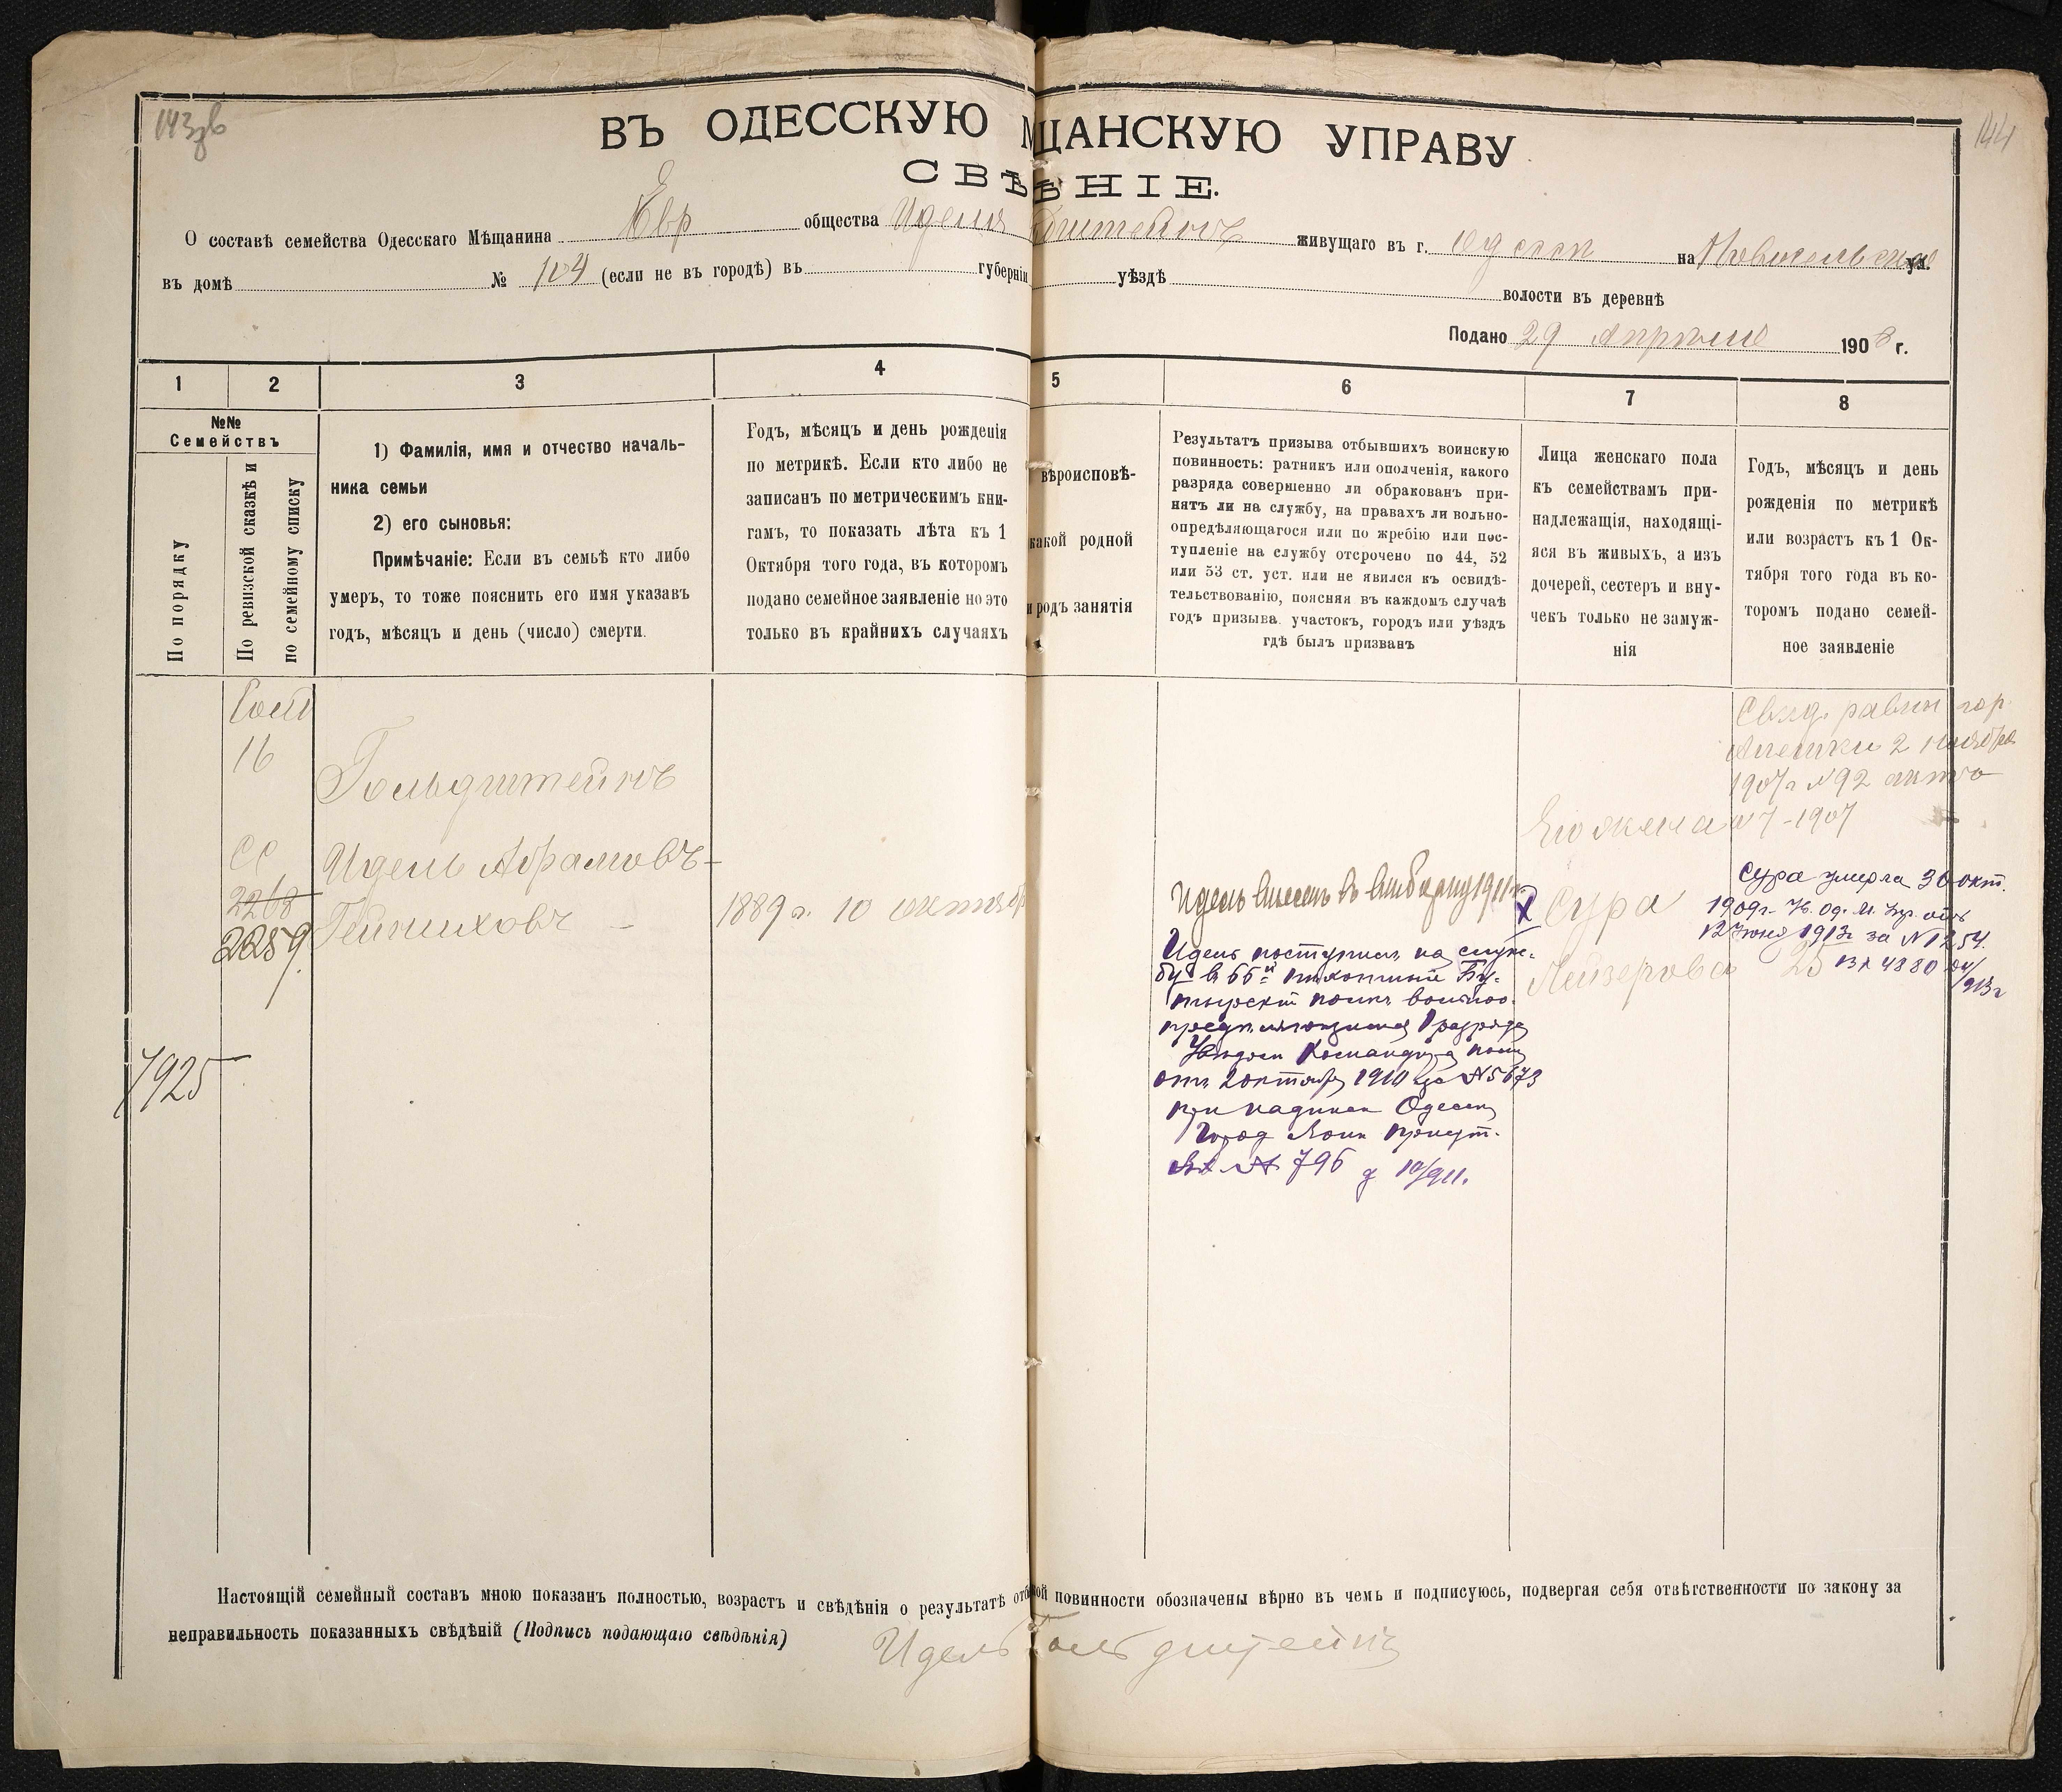 ВЪ ОДЕССКУЮ МѢЩАНСКУЮ УПРАВУ
144
О составѣ семейства Одесскаго Мѣщанина Евр общества Иделя живущаго въ г. Одессѣ на Новосельской ул.
въ домѣ № 104 (если не въ городѣ) въ губерніи уѣздѣ волости въ деревнѣ
Подано 29 Апрѣля 1908 г.
1 2 3 4 5 6 7 8
№№
Семействъ
По порядку
По ревизской сказкѣ и
по семейному списку
1) Фамилія, имя и отчество началь-
ника семьи
2) его сыновья:
Примѣчаніе: Если въ семьѣ кто либо
умеръ, то тоже пояснить его имя указавъ
годъ, мѣсяцъ и день (число) смерти.
Годъ, мѣсяцъ и день рожденія
по метрикѣ. Если кто либо не
записанъ по метрическимъ кни-
гамъ, то показать лѣта къ 1
Октября того года, въ которомъ
подано семейное заявленіе но это
только въ крайнихъ случаяхъ
вѣроисповѣ-
какой родной
и родъ занятія
Результатъ призыва отбывшихъ воинскую
повинность: ратникъ или ополченія, какого
разряда совершенно ли обракованъ при-
нятъ ли на службу, на правахъ ли вольно-
опредѣляющагося или по жребію или пос-
тупленіе на службу отсрочено по 44, 52
или 53 ст. уст. или не явился къ освидѣ-
тельствованію, поясняя въ каждомъ случаѣ
годъ призыва участокъ, городъ или уѣздъ
гдѣ былъ призванъ
Лица женскаго пола
къ семействамъ при-
надлежащія, находящі-
яся въ живыхъ, а изъ
дочерей, сестеръ и вну-
чекъ только не замуж-
нія
Годъ, мѣсяцъ и день
рожденія по метрикѣ
или возрастъ къ 1 Ок-
тября того года въ ко-
торомъ подано семей-
ное заявленіе
16
Гольдштейнъ
СС
2268
2259
Идель Абрамовъ-
1889 г. 10 октябр
7925
Идель поступилъ на служ-
бу в 66й пѣхотный Бу-
тырскій полкъ вольноо-
предѣляющимся 1 разряда
Командира полка
отъ 2 октября 1910 за №5673
при надписи Одесск
Город Воин Присут.
Вх № 796 10/911.
Его жена
Сура
Лейзерова 25
Свид. равин гор.
Алешки 2 ноября
1907 г №92
№7-1907
Сура умерла 30 окт.
1909г. Ув. Од. М. Упр. отъ
12 Іюня 1913г за №1254.
вх 4880
Настоящій семейный составъ мною показанъ полностью, возрастъ и свѣдѣнія о результатѣ отб ой повинности обозначены вѣрно въ чемъ и подписуюсь, подвергая себя отвѣтственности по закону за
неправильность показанныхъ свѣдѣній (Подпись подающаго свѣдѣнія) Идель Гольдштейнъ